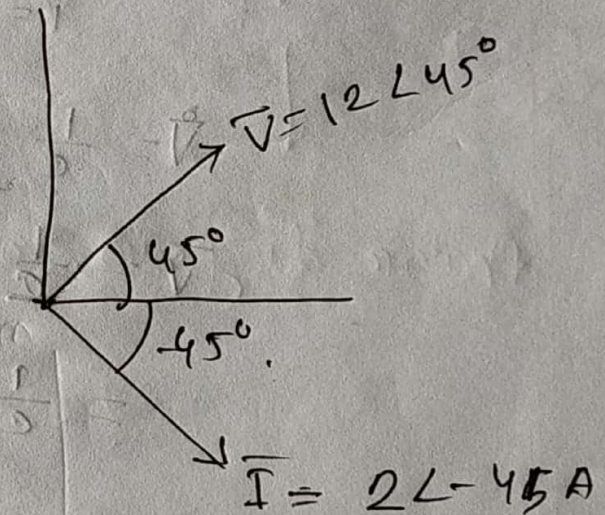 V̅ = 12 ∠45°
45°
-45°.
I̅ = 2∠-45 A